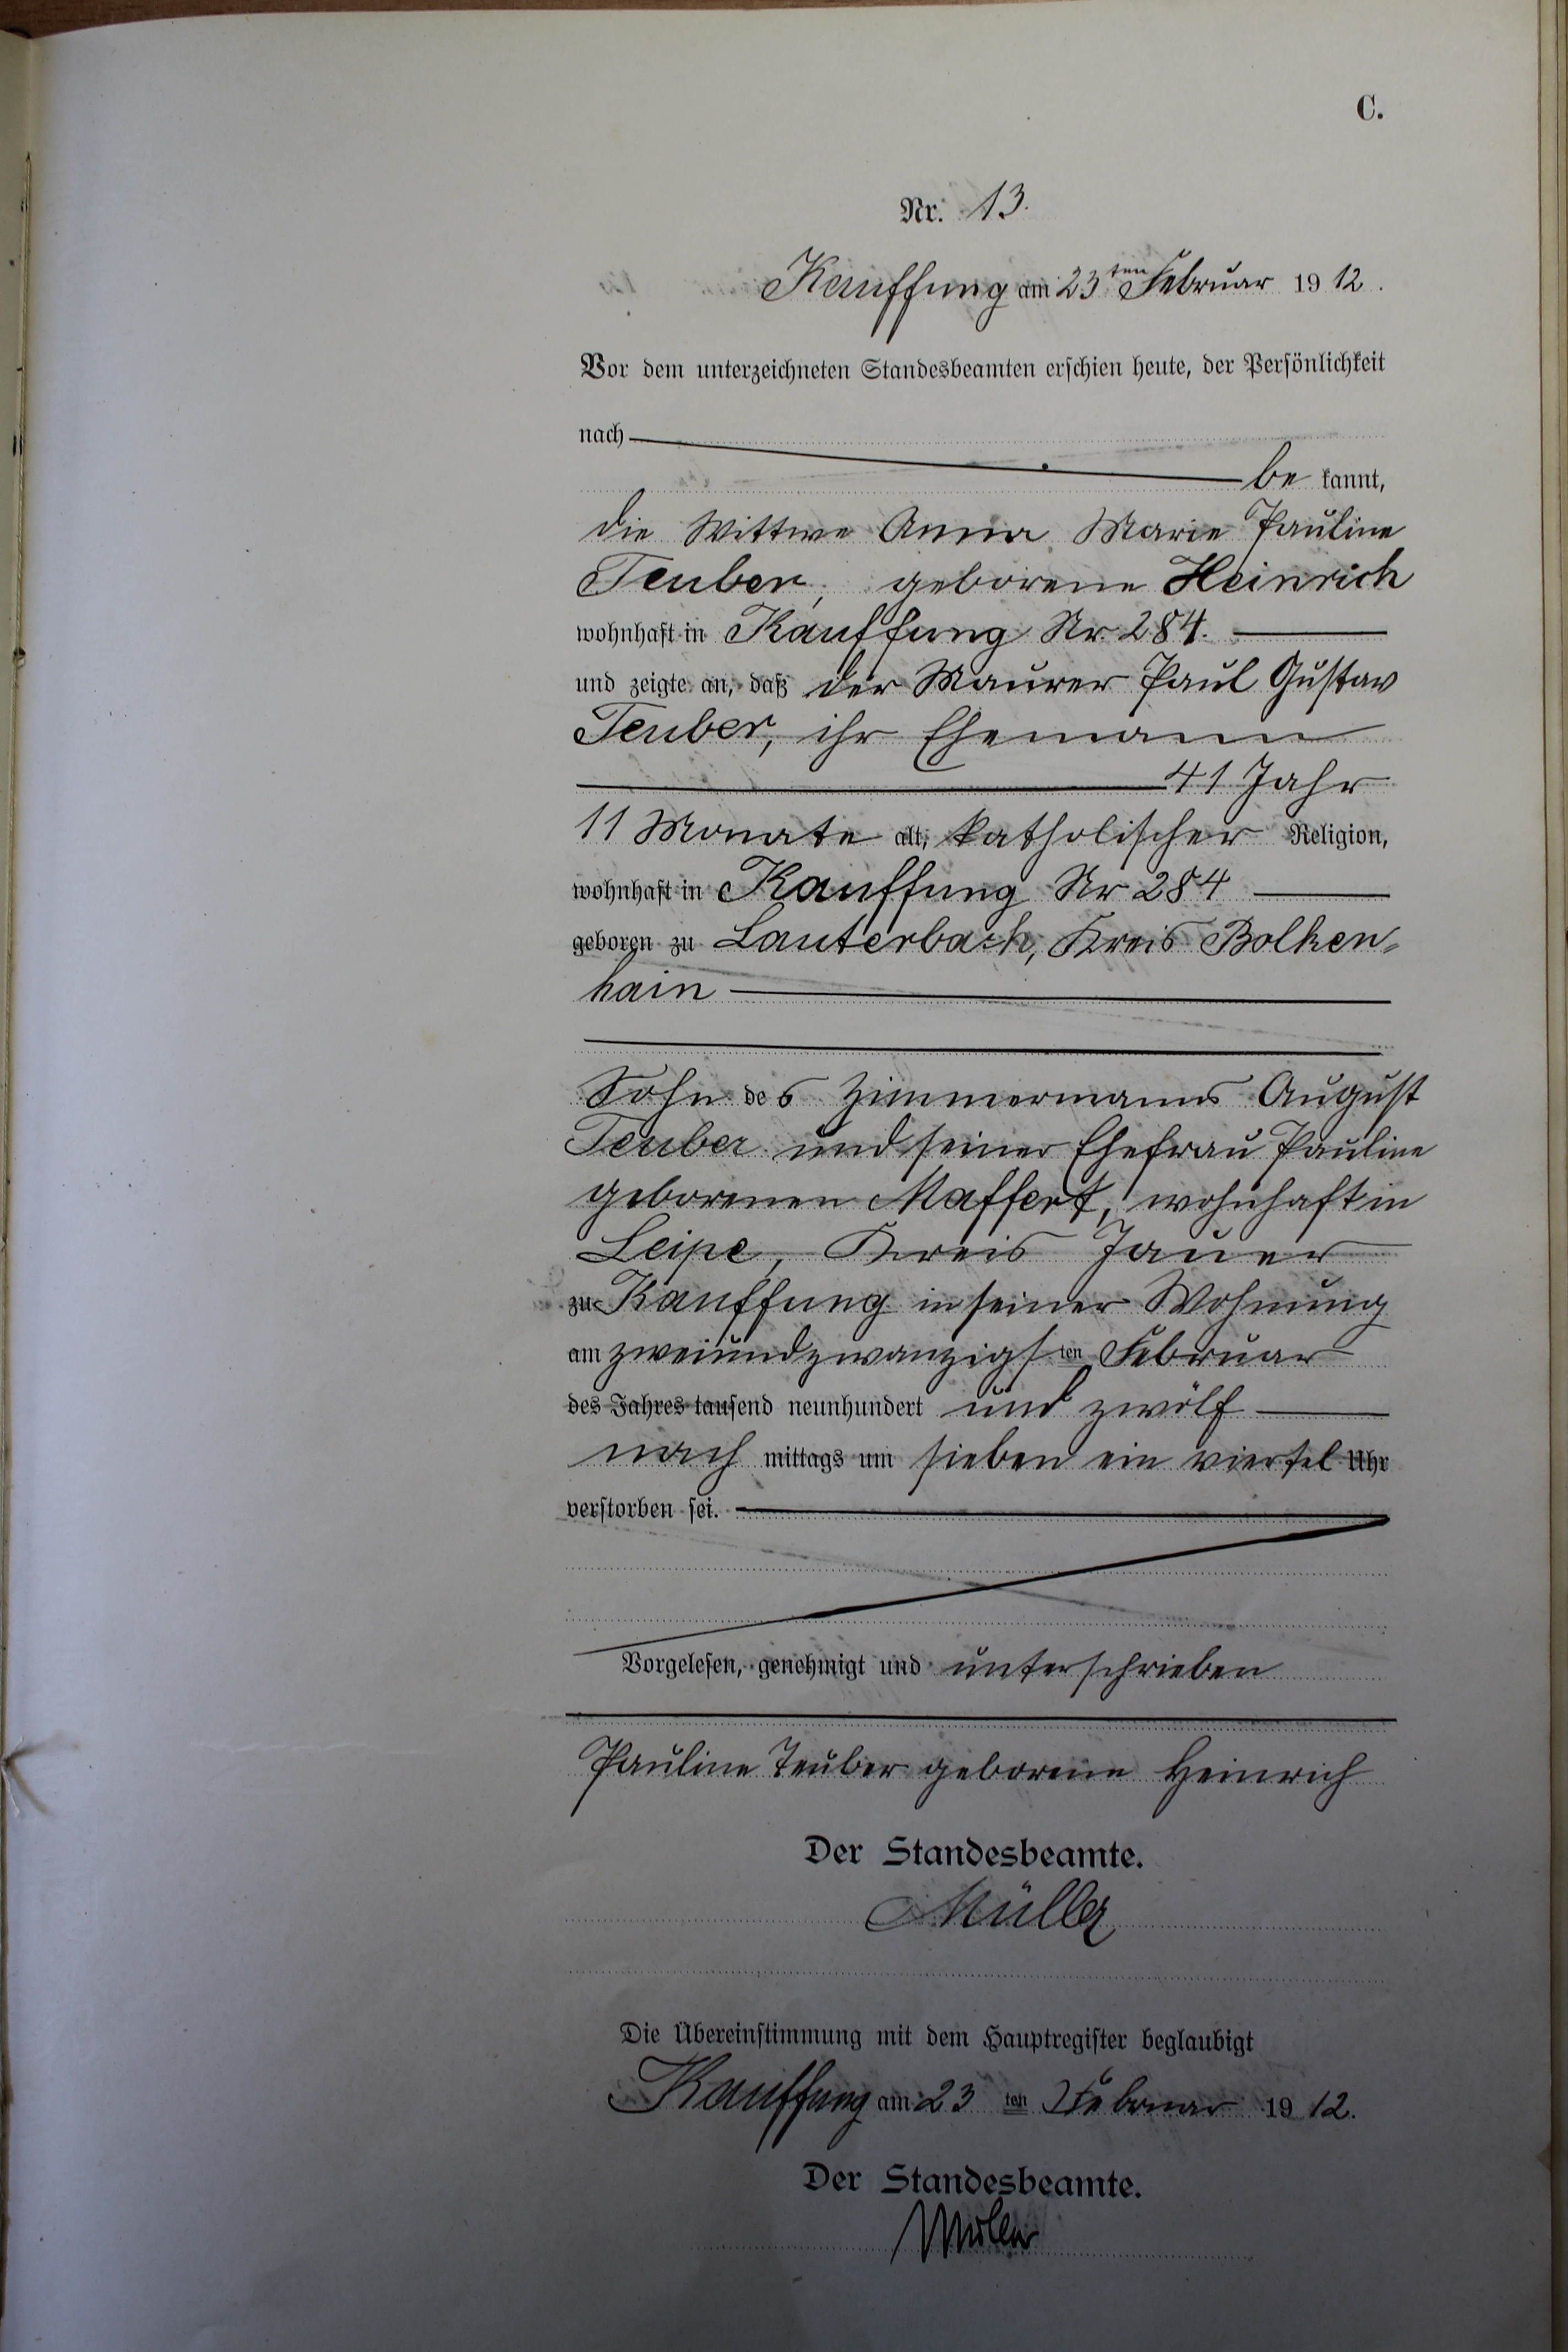 C.
Nr. 13.
Kauffung am 23ten Februar 1912.
Vor dem unterzeichneten Standesbeamten erschien heute, der Persönlichkeit
nach
be kannt,
die Wittwe Anna Marie Pauline
Teuber, geborene Heinrich
wohnhaft in Kauffung Nr. 284.
und zeigte an, daß der Maurer Paul Gustav
Teuber, ihr Ehemann
41 Jahr
11 Monate alt, katholischer Religion,
wohnhaft in Kauffung Nr 284
geboren zu Lauterbach, Kreis Bolken-
hain
Sohn des Zimmermanns August
Teuber und seiner Ehefrau Pauline
geborenen Maffert, wohnhaft in
Leipe, Kreis Jauer
zu Kauffung in seiner Wohnung
am zweiundzwanzigsten Februar
des Jahres tausend neunhundert und zwölf
nach mittags um sieben ein viertel Uhr
verstorben sei.
Vorgelesen, genehmigt und unterschrieben
Pauline Teuber geborene Heinrich
Der Standesbeamte.
Müller
Die Übereinstimmung mit dem Hauptregister beglaubigt
Kauffung am 23 ten Februar 1912.
Der Standesbeamte.
Müller